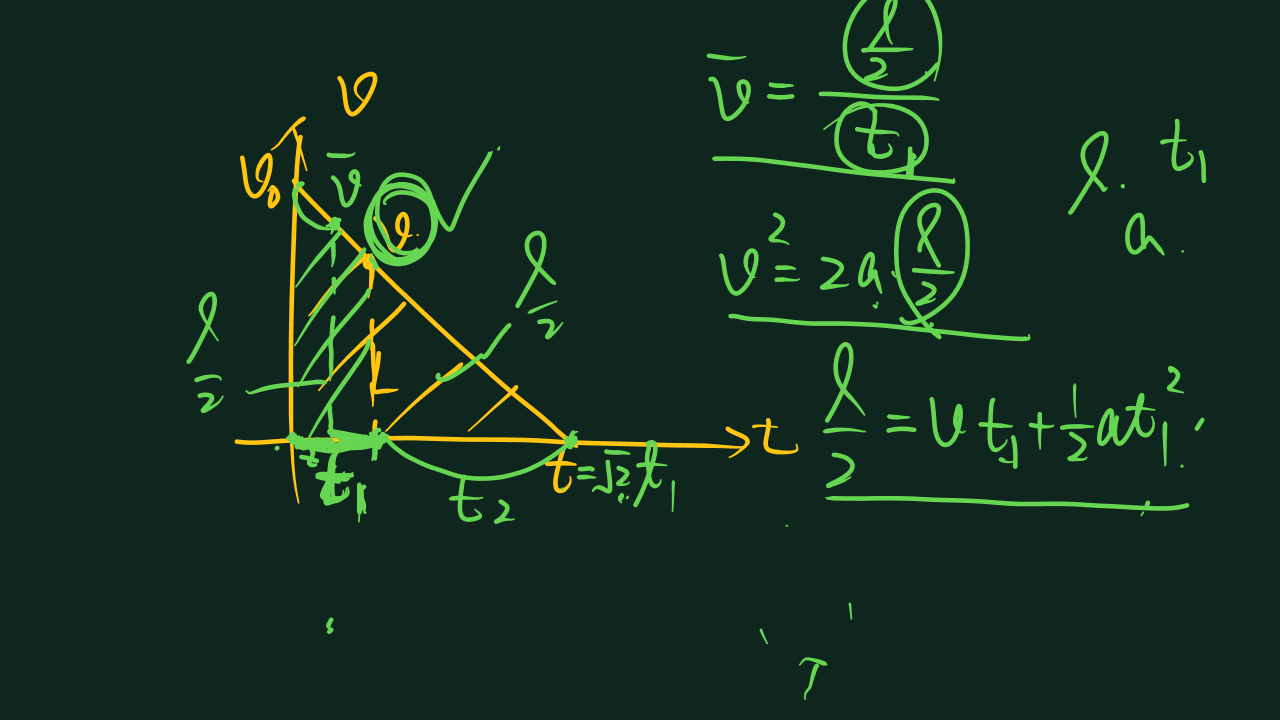 v
v₀
v̄
v
l/2
l/2
t₁
t₂
t=√2 t₁
t
v̄ = (l/2)/t₁
v² = 2a·l/2
l/2 = v t₁ + 1/2 a t₁²
l. t₁
a.